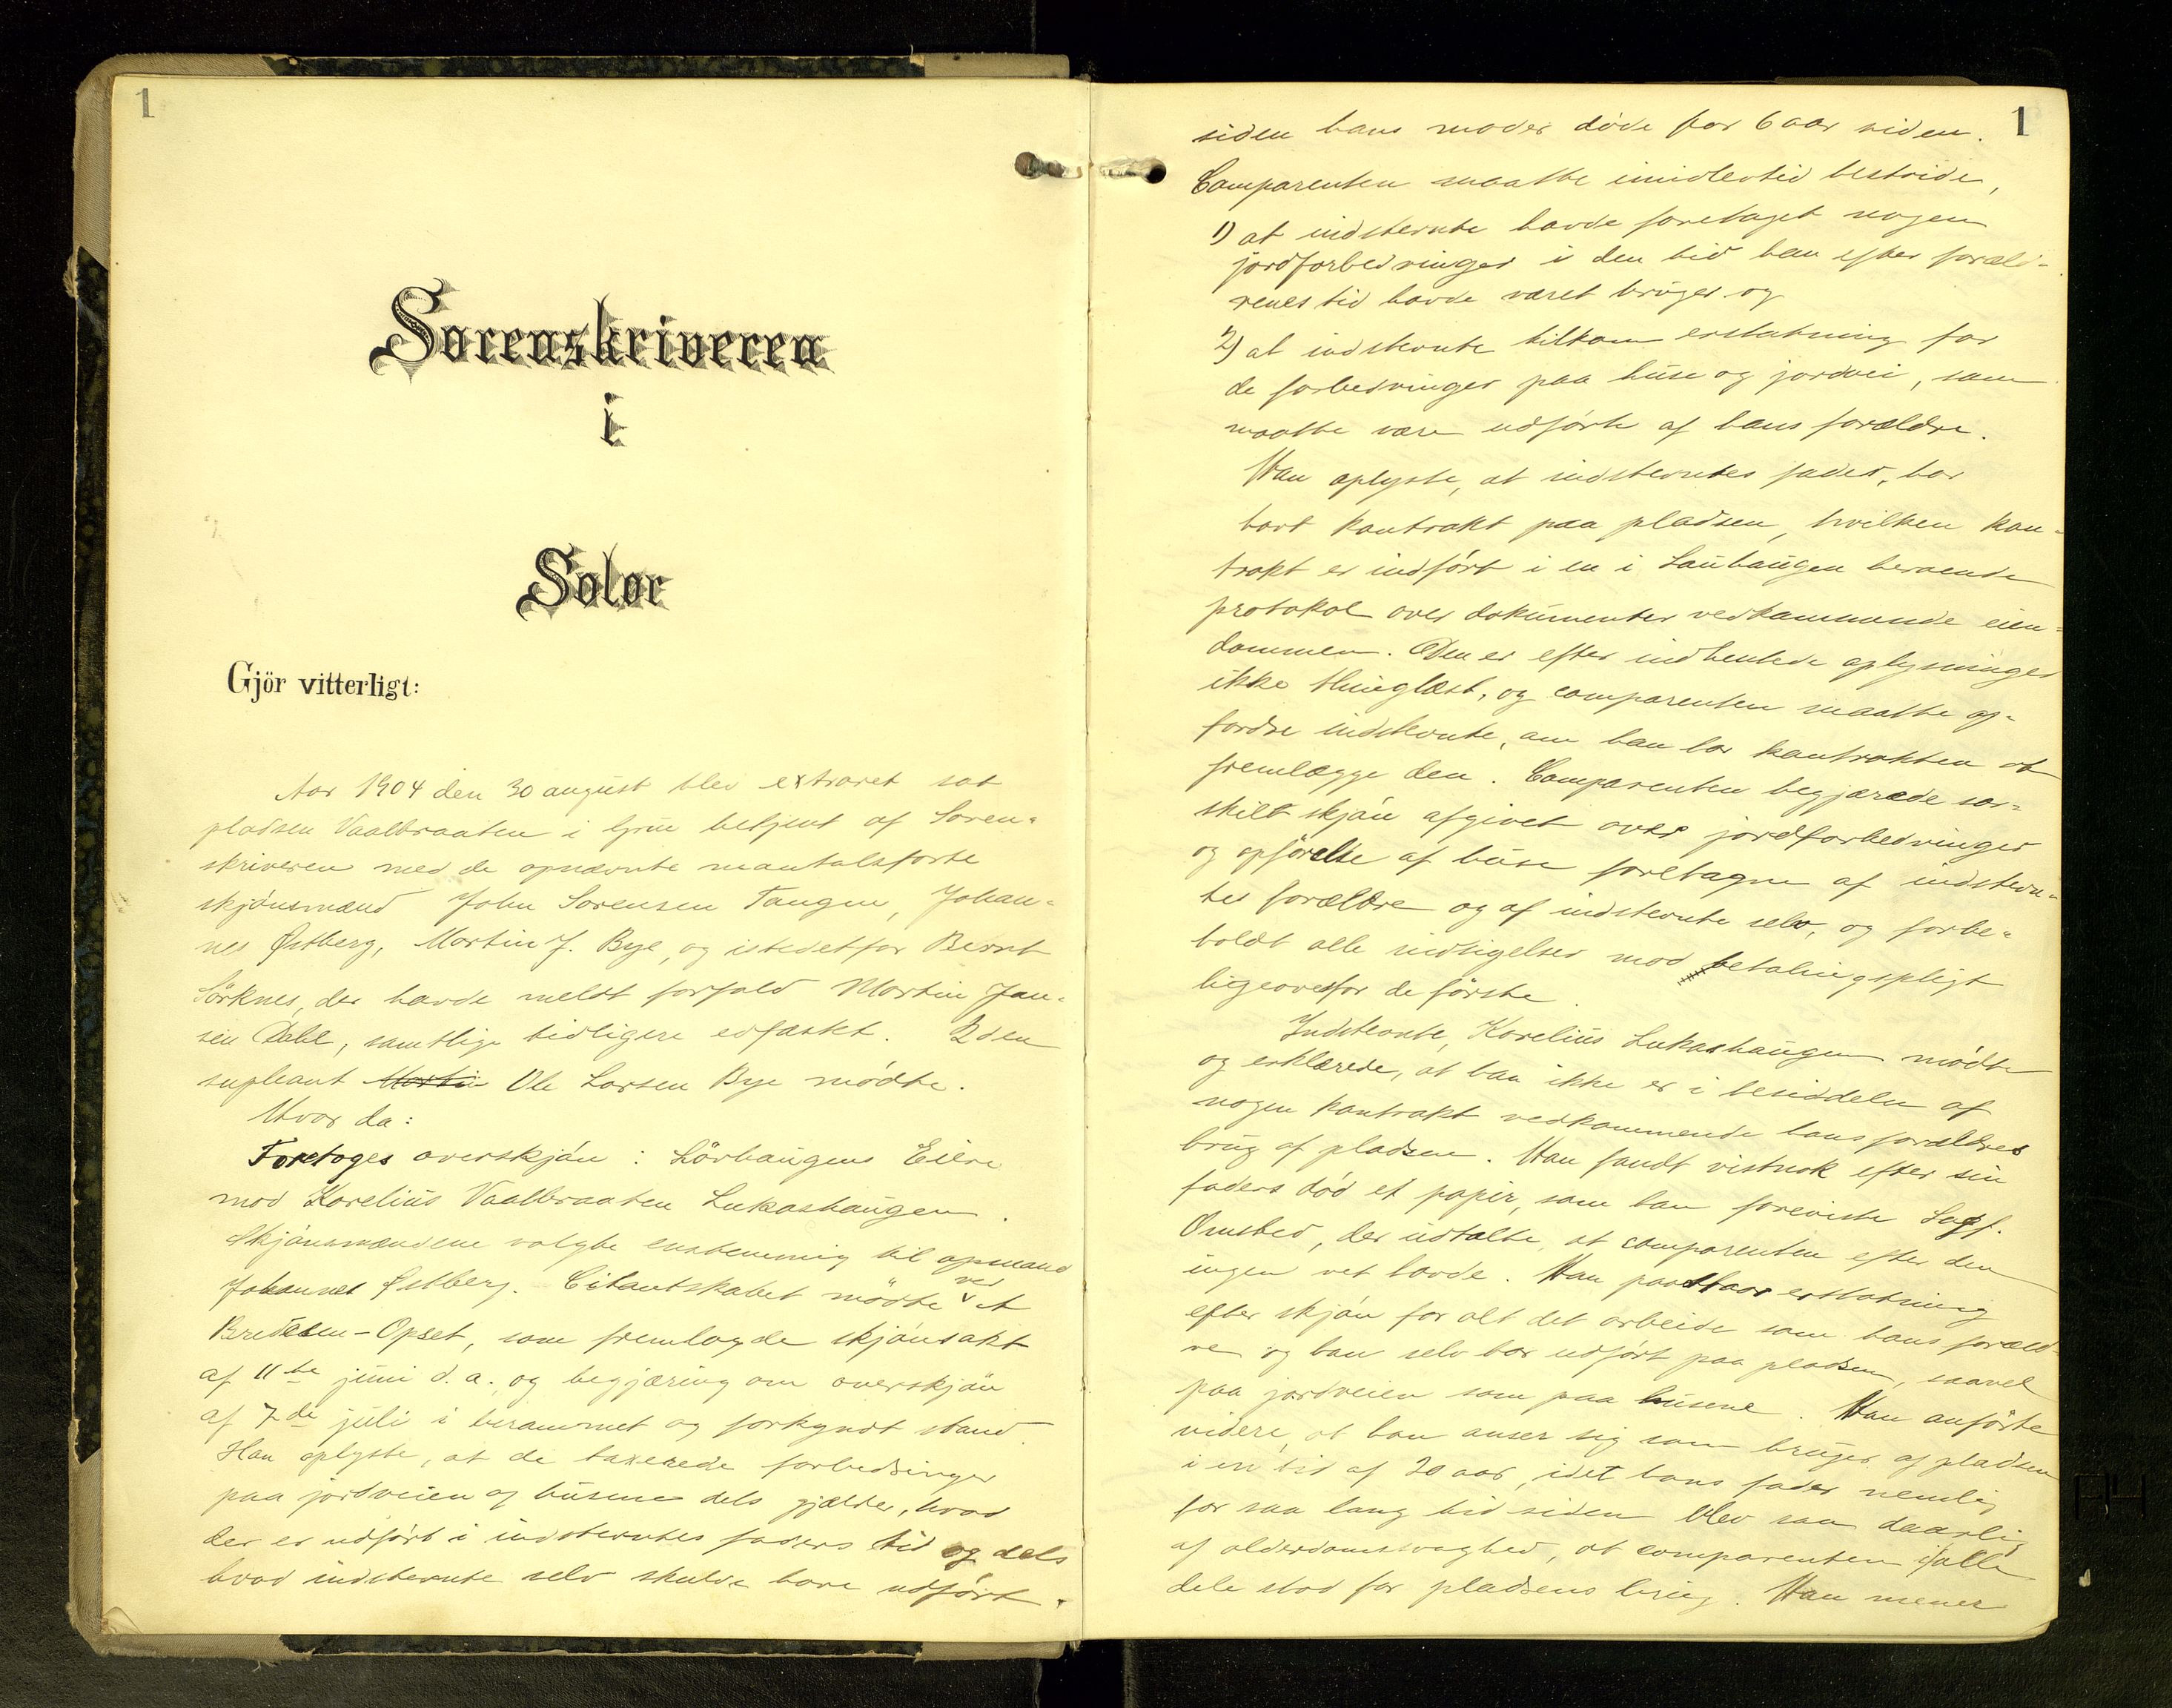 1
Sorenskriveren
i
Solør
Gjör vitterligt:
Aar 1904 den 30 august blev extraret sat
pladsen Vaalbraaten i Grue betjent af Soren-
skriveren med de opnævnte mantalsførte
skjönsmænd John Sorensen Tangen, Johan-
nes Østberg, Martin J. Bye, og istedetfor Bernt
Sörknes, der havde meldt forfald Martin Jan-
sen Dahl, samtlige tidligere edfæstet. 2den
supleant Martin Ole Larsen Bye mödte.
Hvor da:
Foretoges overskjön: Lövhaugens Eiere
mod Korelius Vaalbraaten Lukashaugen.
Skjönsmændene valgte enstemmig til opmand
Johannes Østberg. Citantskabet mödte ved A
Bredesen-Opset, som fremlagde skjönsakt
af 11te juni d. a. og begjæring om overskjön
af 7de juli i berammet og forkyndt stand.
Han oplyste, at de taxerede forbedringer
paa jordveien og husene dels gjælder, hvad
der er udfört i indstevntes faders tid og dels
hvad indstevnte selv skulde have udfört.
1
siden hans moder döde for 6 aar siden.
Comparenten maatte imidlertid bestride,
1) at indstevnte havde foretaget nogen
jordforbedringer i den tid han efter foræld-
renes tid havde været bruger og
2) at indstevnte tilkom erstatning for
de forbedringer paa huse og jordvei, som
maatte være udförte af hans forældre.
Han oplyste, at indstevntes fader, har
havt kontrakt paa pladsen, hvilken kon-
trakt er indfört i en i Lauhaugen beroende
protokol over dokumenter vedkommende eien-
dommen. Den er efter indhentede oplysninger
ikke thinglæst, og comparenten maatte op-
fordre indstevnte, om han har kontrakten at
fremlægge den. Comparenten begjærede sær-
skilt skjön afgivet over jordforbedringer
og opförelse af huse foretagne af indstevn-
tes forældre og af indstevnte selv, og forbe-
holdt alle indsigelser mod betalingspligt
ligeoverfor de förste.
Indstevnte, Korelius Lukashaugen mödte
og erklærede, at han ikke er i besiddelse af
nogen kontrakt vedkommende hans forældres
brug af pladsen. Han fandt vistnok efter sin
faders död et papir, som han foreviste Sagf.
Omsted, der udtalte, at comparenten efter den
ingen ret havde. Han paastaar erstatning
efter skjön for alt det arbeide som hans foræld-
re og han selv har udfört paa pladsen, saavel
paa jordveien som paa husene. Han anförte
videre, at han anser sig som bruger af pladsen
i en tid af 20 aar, idet hans fader nemlig
for saa lang tid siden blev saa daarlig
af alderdomssvaghed, at comparenten ifalle
dele stod for pladsens brug. Han mener